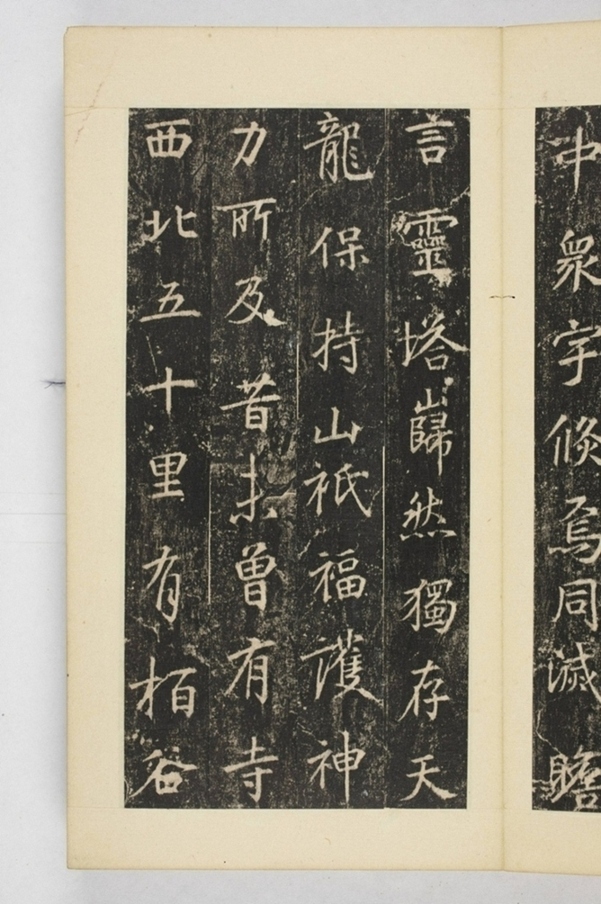 中衆宇倏焉同滅瞻
言靈塔巋然獨存天
龍保持山祇福護神
力所及昔未曾有寺
西北五十里有栢谷